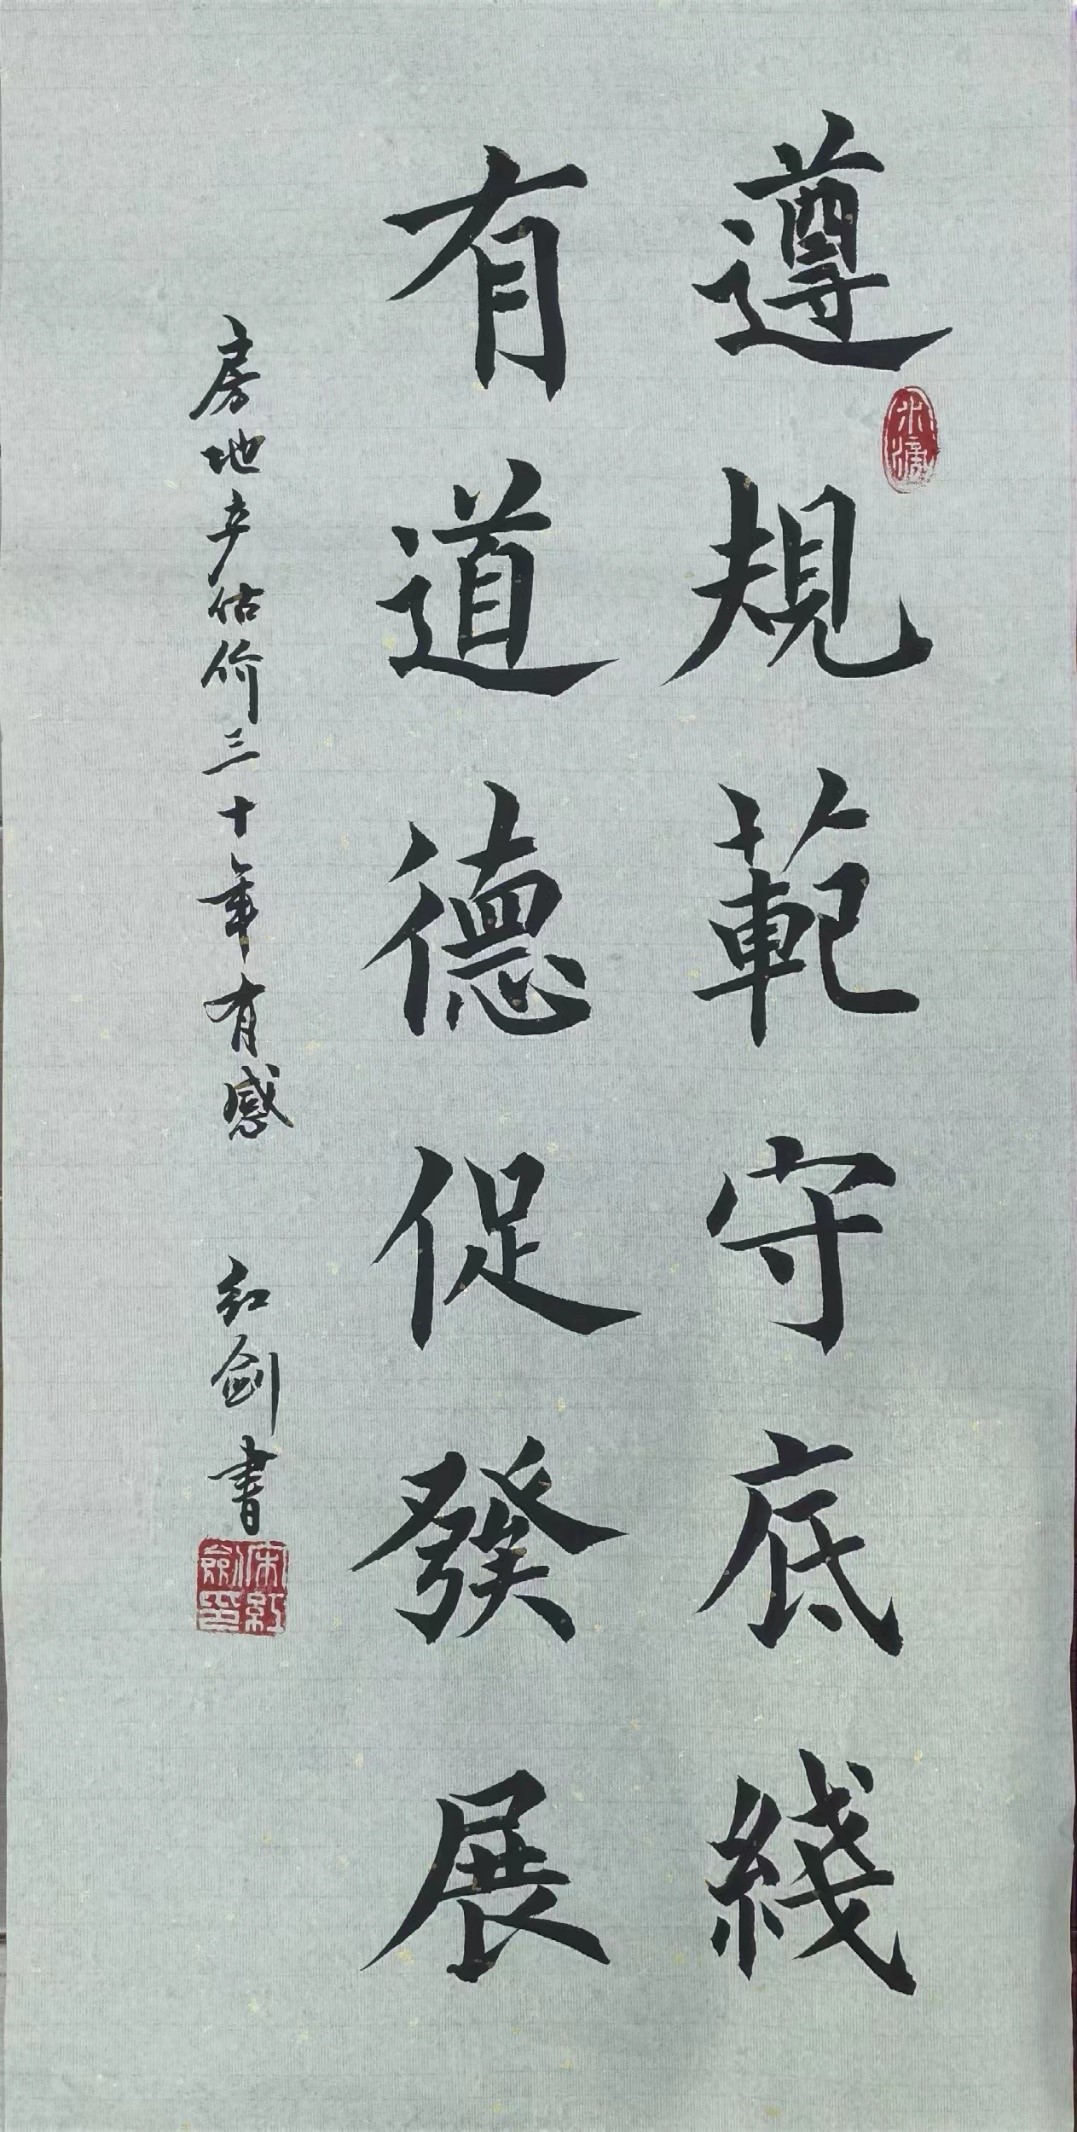 遵規範守底綫
有道德促發展
房地产估价三十年有感 红剑書